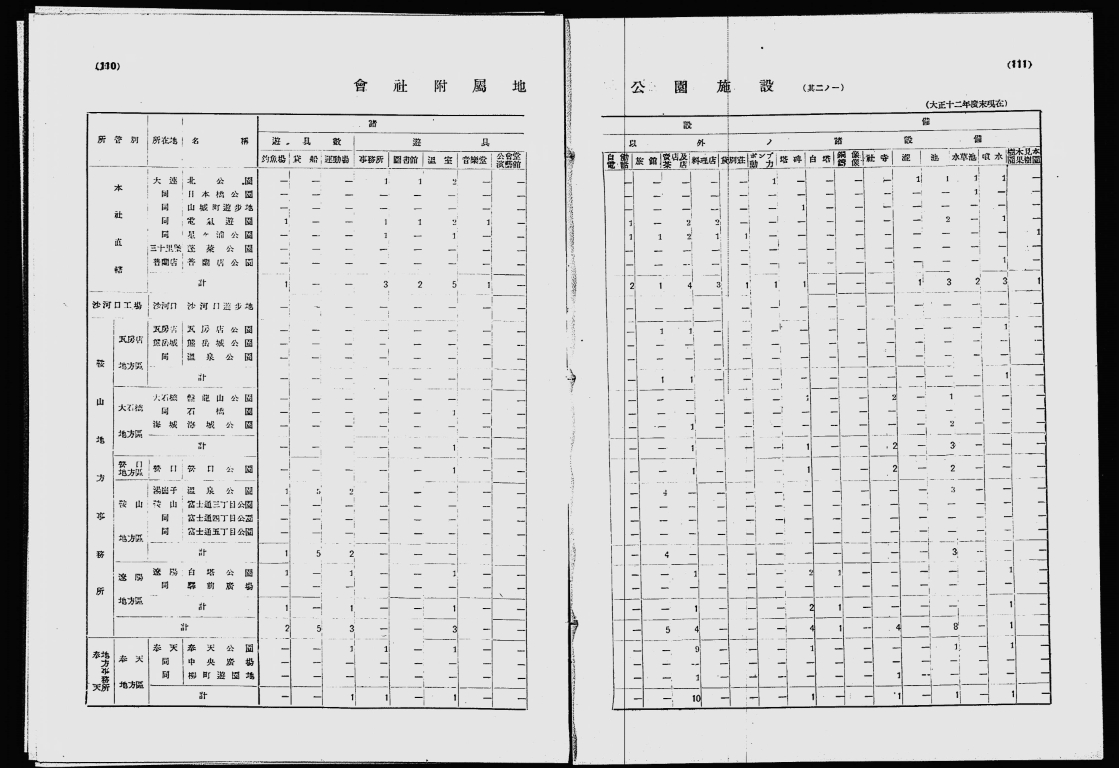 (110)
會社附屬地
諸
所管別 所在地 名稱 遊具數 遊具
釣魚場 貸船 運動場 事務所 圖書館 溫室 音樂堂 公會堂演藝館
本社直轄
大連 北公園 — — — 1 1 2 — —
同 日本橋公園 — — — — — — — —
同 山城町遊步地 — — — — — — — —
同 電氣遊園 1 — — 1 1 2 1 —
同 星ヶ浦公園 — — — 1 — 1 — —
三十里堡 蓬萊公園 — — — — — — — —
普蘭店 普蘭店公園 — — — — — — — —
計 1 — — 3 2 5 1 —
沙河口工場 沙河口 沙河口遊步地 — — — — — — — —
鞍山地方事務所
瓦房店地方區
瓦房店 瓦房店公園 — — — — — — — —
熊岳城 熊岳城公園 — — — — — — — —
同 溫泉公園 — — — — — — — —
計 — — — — — — — —
大石橋地方區
大石橋 盤龍山公園 — — — — — — — —
同 石橋園 — — — — — 1 — —
海城 海城公園 — — — — — — — —
計 — — — — — 1 — —
營口地方區 營口 營口公園 — — — — — 1 — —
鞍山地方區
湯崗子 溫泉公園 1 5 2 — — — — —
鞍山 富士通三丁目公園 — — — — — — — —
同 富士通四丁目公園 — — — — — — — —
同 富士通五丁目公園 — — — — — — — —
計 1 5 2 — — — — —
遼陽地方區
遼陽 白塔公園 1 — 1 — — 1 — —
同 驛前廣場 — — — — — — — —
計 1 — 1 — — 1 — —
計 2 5 3 — — 3 — —
奉天地方事務所
奉天地方區
奉天 奉天公園 — — 1 1 — 1 — —
同 中央廣場 — — — — — — — —
同 柳町遊園地 — — — — — — — —
計 — — 1 1 — 1 — —
(111)
公園施設 (其二ノ一)
(大正十二年度末現在)
設備
以外ノ諸設備
自働電話 旅館 賣店及茶店 料理店 貸別莊 ポンプ動力 塔碑 白塔 銅像 社寺 池 水草池 噴水
— — — — — 1 — — — — 1 1 1 1 —
— — — — — — — — — — — — 1 — —
— — — — — — 1 — — — — — — — —
1 — 2 2 — — — — — — — 2 — 1 —
1 1 2 1 1 — — — — — — — — — 1
— — — — — — — — — — — — — — —
— — — — — — — — — — — — — 1 —
2 1 4 3 1 1 1 — — — 1 3 2 3 1
— — — — — — — — — — — — — — —
— 1 1 — — — — — — — — — — 1 —
— — — — — — — — — — — — — — —
— — — — — — — — — — — — — — —
— 1 1 — — — — — — — — — — 1 —
— — — — — — 1 — — 2 — 1 — — —
— — — — — — — — — — — — — — —
— — 1 — — — — — — — — 2 — — —
— — 1 — — — 1 — — 2 — 3 — — —
— — 1 — — — 1 — — 2 — 2 — — —
— 4 — — — — — — — — — 3 — — —
— — — — — — — — — — — — — — —
— — — — — — — — — — — — — — —
— — — — — — — — — — — — — — —
— 4 — — — — — — — — — 3 — — —
— — 1 — — — 2 1 — — — — — 1 —
— — — — — — — — — — — — — — —
— — 1 — — — 2 1 — — — — — 1 —
— 5 4 — — — 4 1 — 4 — 8 — 1 —
— — 9 — — — 1 — — — — 1 — 1 —
— — — — — — — — — — — — — — —
— — 1 — — — — — — 1 — — — — —
— — 10 — — — 1 — — 1 — 1 — 1 —